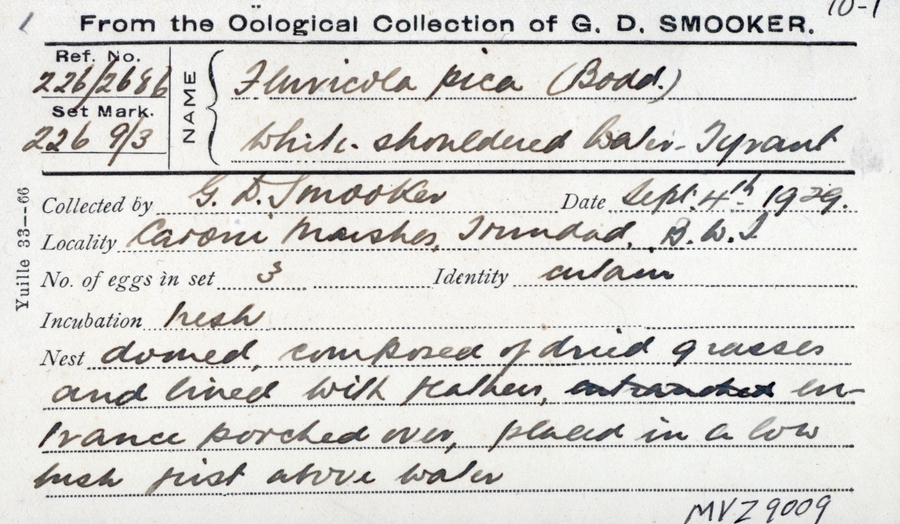 10-1
From the Oölogical Collection of G. D. SMOOKER.
Ref. No. 226/2686
Set Mark. 226 9/3
NAME
Fluvicola pica (Bodd.)
White-shouldered Water-Tyrant
Collected by G. D. Smooker Date Sept. 4th 1929.
Locality Caroni Marshes, Trinidad, B.W.I
No. of eggs in set 3 Identity certain
Incubation fresh
Nest domed, composed of dried grasses
and lined with feathers, entranched en-
trance porched over, placed in a low
bush just above water
Yuille 33—66
MVZ 9009